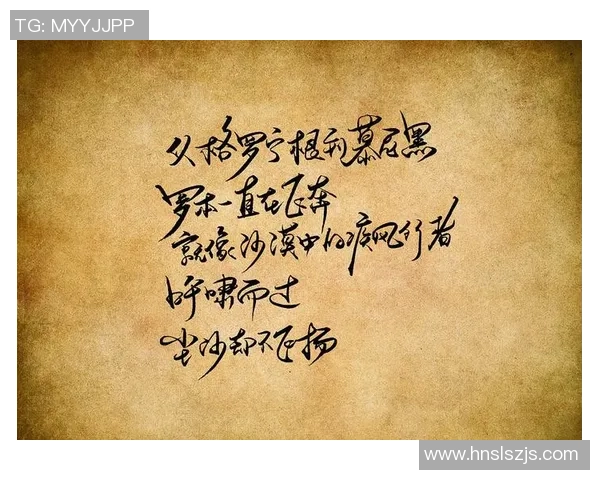 TG: MYYJJPP
从格罗宁根到慕尼黑
罗本一直在飞奔
就像沙漠中的疾风行者
呼啸而过
尘沙却不飞扬
www.hnslszjs.com